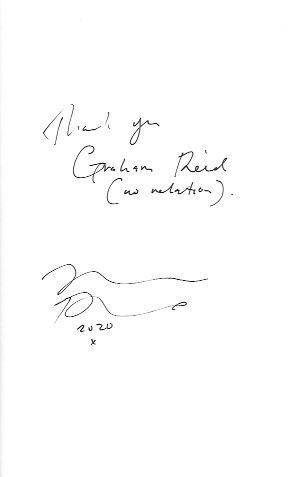 Thank you
Graham Reid
(no relation).
2020
x